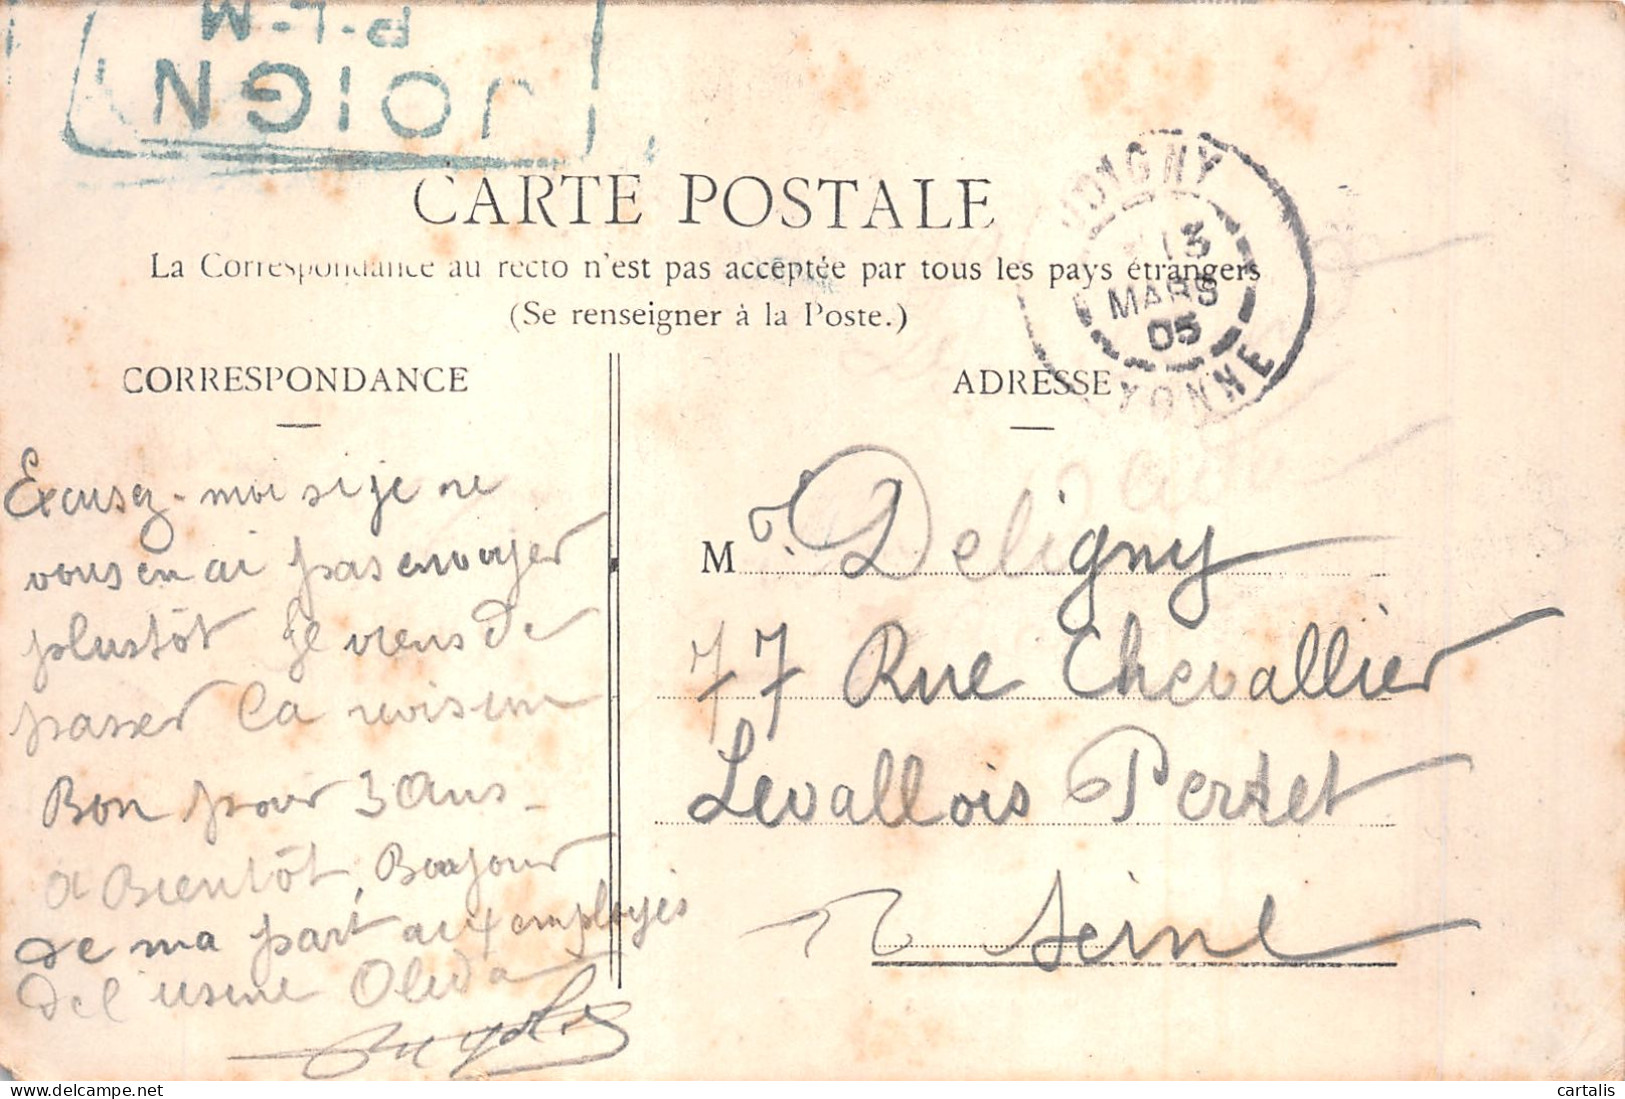 P-L-M
JOIGN
CARTE POSTALE
La Correspondance au recto n'est pas acceptée par tous les pays étrangers
(Se renseigner à la Poste.)
JOIGNY
13
MARS
05
YONNE
CORRESPONDANCE
Excusez-moi si je ne
vous en ai pas envoyer
plustôt Je viens de
passer la
Bon pour 3 Ans -
a Bientôt, Bonjour
de ma part aux employés
del'usine
ADRESSE
Mr. Deligny
77 Rue Chevallier
Levallois Perret
Seine
cartalis